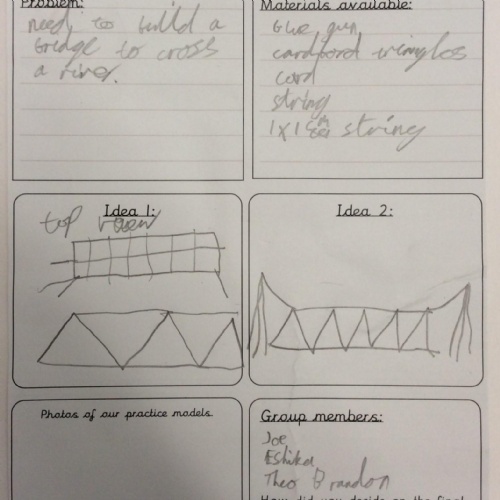 Problem:
need to build a
bridge to cross
a river.
Materials available:
Glue gun
cardbord triangles
card
string
1x1 string
Idea 1:
top
Idea 2:
Photos of our practice models
Group members:
Joe
Eshika
Theo Brandon
How did you decide on the final